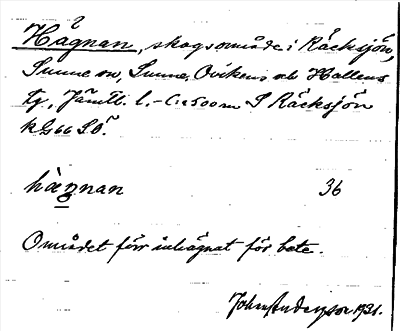 Hägnan, skogsområde i Räcksjön,
Sunne sn, Sunne, Ovikens och Hallens
tg, Jämtl. l. – C:a 500 m S Räcksjön
kG66 SÖ.
hä̀g̲nan 36
Området förr inhägnat för bete.
John Andersson 1931.